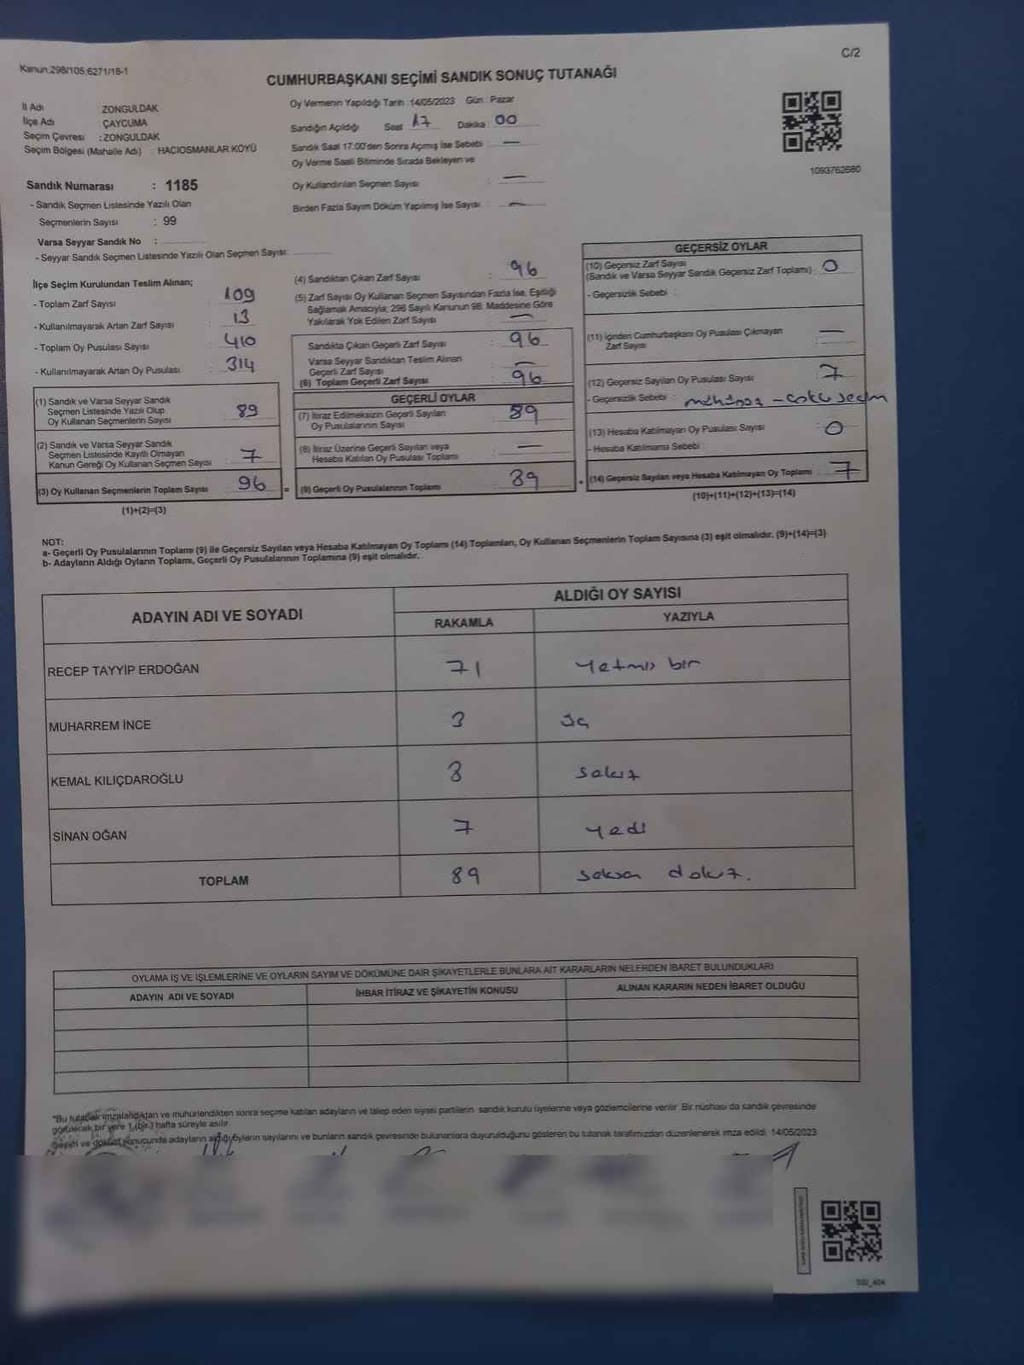 Kanun:298/105;6271/18-1
C/2
CUMHURBAŞKANI SEÇİMİ SANDIK SONUÇ TUTANAĞI
İl Adı ZONGULDAK
İlçe Adı ÇAYCUMA
Seçim Çevresi : ZONGULDAK
Seçim Bölgesi (Mahalle Adı) : HACIOSMANLAR KÖYÜ
Oy Vermenin Yapıldığı Tarih : 14/05/2023 Gün : Pazar
Sandığın Açıldığı Saat 17 Dakika : 00
Sandık Saat 17:00'den Sonra Açımış İse Sebebi : —
Oy Verme Saati Bitiminde Sırada Bekleyen ve
Oy Kullandırılan Seçmen Sayısı : —
Birden Fazla Sayım Döküm Yapılmış İse Sayısı : —
1093762680
Sandık Numarası : 1185
- Sandık Seçmen Listesinde Yazılı Olan
Seçmenlerin Sayısı : 99
Varsa Seyyar Sandık No :
- Seyyar Sandık Seçmen Listesinde Yazılı Olan Seçmen Sayısı:
İlçe Seçim Kurulundan Teslim Alınan;
- Toplam Zarf Sayısı : 109
- Kullanılmayarak Artan Zarf Sayısı : 13
- Toplam Oy Pusulası Sayısı : 410
- Kullanılmayarak Artan Oy Pusulası : 314
(1) Sandık ve Varsa Seyyar Sandık
Seçmen Listesinde Yazılı Olup
Oy Kullanan Seçmenlerin Sayısı : 89
(2) Sandık ve Varsa Seyyar Sandık
Seçmen Listesinde Kayıtlı Olmayan
Kanun Gereği Oy Kullanan Seçmen Sayısı : 7
(3) Oy Kullanan Seçmenlerin Toplam Sayısı : 96
(1)+(2)=(3)
(4) Sandıktan Çıkan Zarf Sayısı : 96
(5) Zarf Sayısı Oy Kullanan Seçmen Sayısından Fazla İse, Eşitliği
Sağlamak Amacıyla; 298 Sayılı Kanunun 98. Maddesine Göre
Yakılarak Yok Edilen Zarf Sayısı : —
Sandıkta Çıkan Geçerli Zarf Sayısı : 96
Varsa Seyyar Sandıktan Teslim Alınan
Geçerli Zarf Sayısı : —
(6) Toplam Geçerli Zarf Sayısı : 96
GEÇERLİ OYLAR
(7) İtiraz Edilmeksizin Geçerli Sayılan
Oy Pusulasının Sayısı : 89
(8) İtiraz Üzerine Geçerli Sayılan veya
Hesaba Katılan Oy Pusulası Toplamı : —
= (9) Geçerli Oy Pusulalarının Toplamı : 89
GEÇERSİZ OYLAR
(10) Geçersiz Zarf Sayısı
(Sandık ve Varsa Seyyar Sandık Geçersiz Zarf Toplamı) : 0
- Geçersizlik Sebebi :
(11) İçinden Cumhurbaşkanı Oy Pusulası Çıkmayan
Zarf Sayısı : —
(12) Geçersiz Sayılan Oy Pusulası Sayısı : 7
- Geçersizlik Sebebi :
(13) Hesaba Katılmayan Oy Pusulası Sayısı : 0
- Hesaba Katılmama Sebebi :
+ (14) Geçersiz Sayılan veya Hesaba Katılmayan Oy Toplamı : 7
(10)+(11)+(12)+(13)=(14)
NOT:
a- Geçerli Oy Pusulalarının Toplamı (9) ile Geçersiz Sayılan veya Hesaba Katılmayan Oy Toplamı (14) Toplamları, Oy Kullanan Seçmenlerin Toplam Sayısına (3) eşit olmalıdır. (9)+(14)=(3)
b- Adayların Aldığı Oyların Toplamı, Geçerli Oy Pusulalarının Toplamına (9) eşit olmalıdır.
ADAYIN ADI VE SOYADI
ALDIĞI OY SAYISI
RAKAMLA YAZIYLA
RECEP TAYYİP ERDOĞAN 71 Yetmiş bir
MUHARREM İNCE 3 üç
KEMAL KILIÇDAROĞLU 8 sekiz
SİNAN OĞAN 7 yedi
TOPLAM 89 seksen dokuz.
OYLAMA İŞ VE İŞLEMLERİNE VE OYLARIN SAYIM VE DÖKÜMÜNE DAİR ŞİKAYETLERLE BUNLARA AİT KARARLARIN NELERDEN İBARET BULUNDUKLARI
ADAYIN ADI VE SOYADI İHBAR İTİRAZ VE ŞİKAYETİN KONUSU ALINAN KARARIN NEDEN İBARET OLDUĞU
*Bu tutanak imzalandıktan ve mühürlendikten sonra seçime katılan adayların ve talep eden siyasi partilerin sandık kurulu üyelerine veya gözlemcilerine verilir. Bir nüshası da sandık çevresinde
görülecek bir yere 1 (bir) hafta süreyle asılır.
Sayım ve döküm sonucunda adayların aldığı oyların sayılarını ve bunların sandık çevresinde bulunanlara duyurulduğunu gösteren bu tutanak tarafımızdan düzenlenerek imza edildi. 14/05/2023